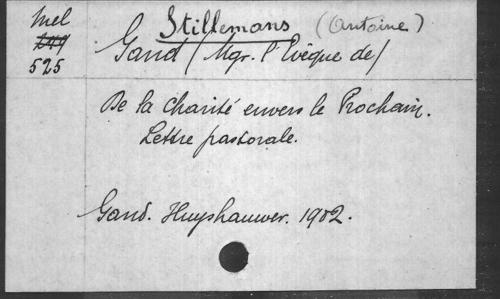 Mel
249
525
Stillemans (Antoine)
Gand (Mgr. l'Evêque de)
De la Charité envers le Prochain.
Lettre pastorale.
Gand. Huyshauwer. 1902.